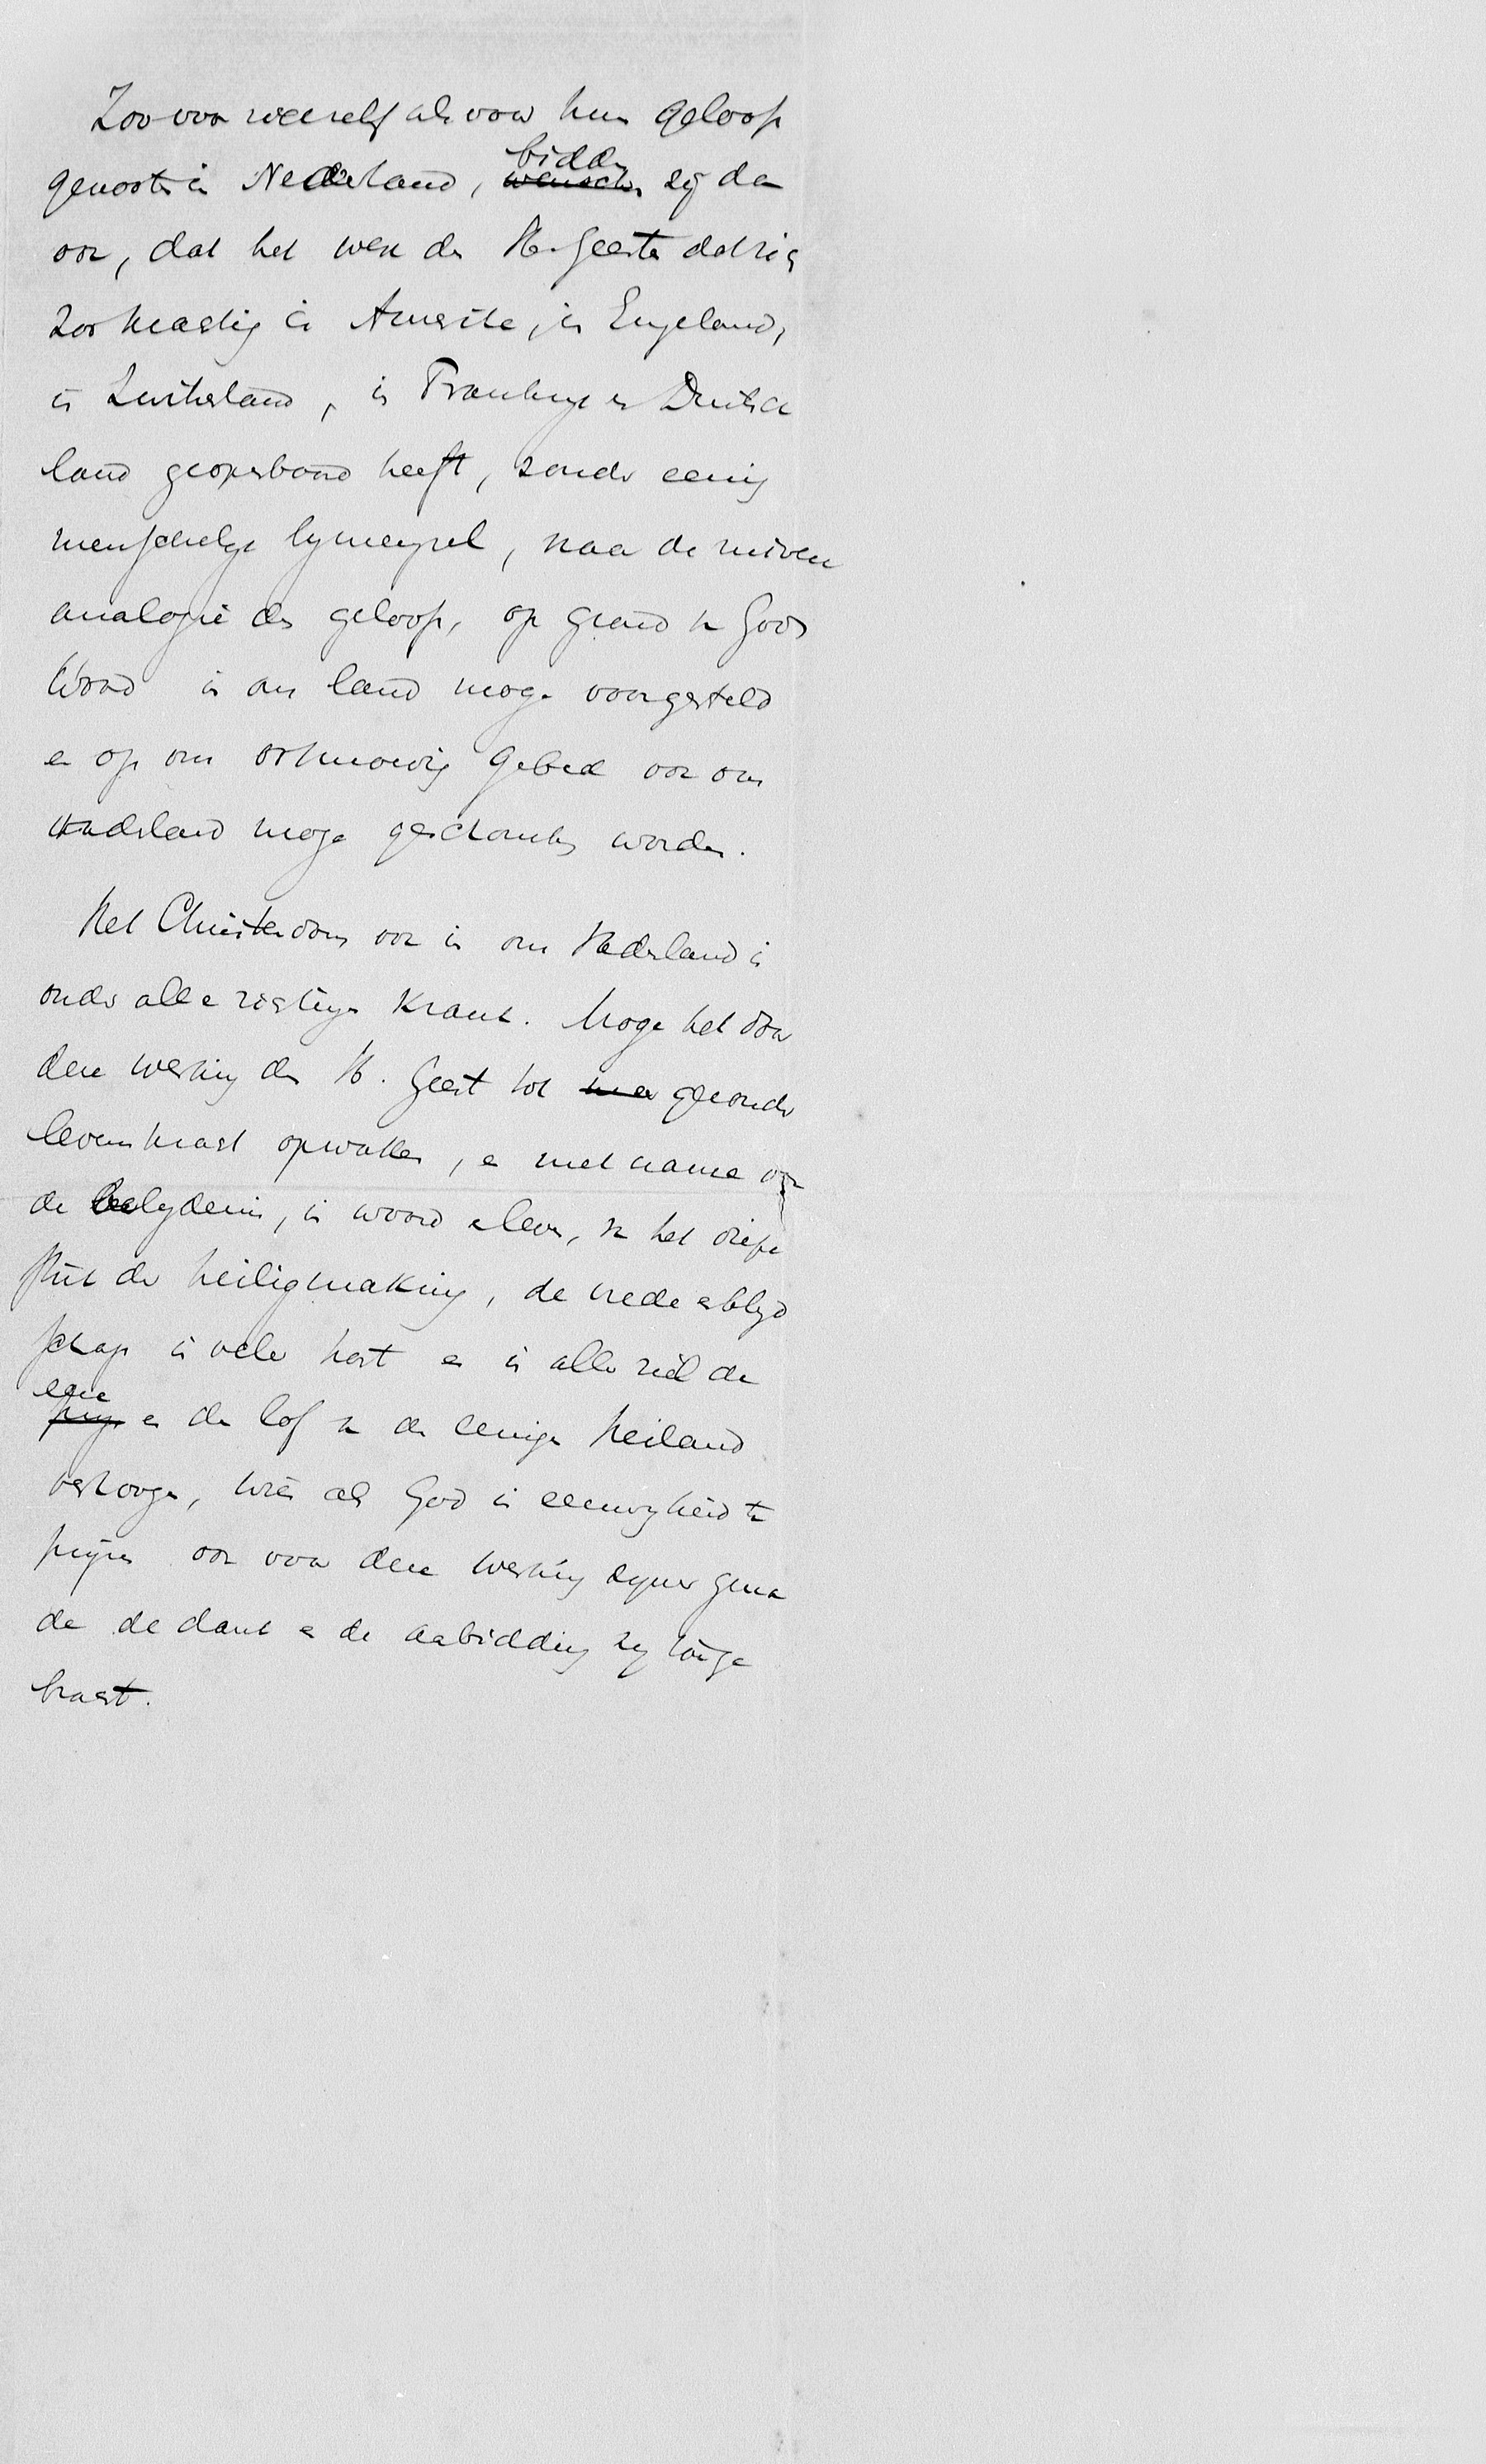 Zoo voor zich zelf als voor hun geloofs
genooten in Nederland, bidden zij dan
ook, dat het werk des H. Geestes dat zich
zoo krachtig in Amerika, in Engeland,
in Zwitserland, in Frankrijk en Duitsch
land geopenbaard heeft, zonder eenig
menschelijk bijmengsel, naar de zuivere
analogie des geloofs, op grond van Gods
Woord in ons land moge voorgesteld
en op ons ootmoedig gebed ook ons
vaderland moge geschonken worden.
Het Christendom ook in ons Vaderland is
onder alle rigtingen krank. Moge het door
deze werking des H. Geest tot gezonder
levenskracht opwaken, en met name ook
de belydenis, in woord en leven, van het diepe
stuk der heiligmaking, de vrede en blyd
schap in veler hart en in aller ziel de
eere en den lof van den eenigen Heiland
verhoogen, wien als God in eeuwigheid te
prijzen ook voor deze werking zyner gena
de de dank en de aanbidding zy toege
bracht.